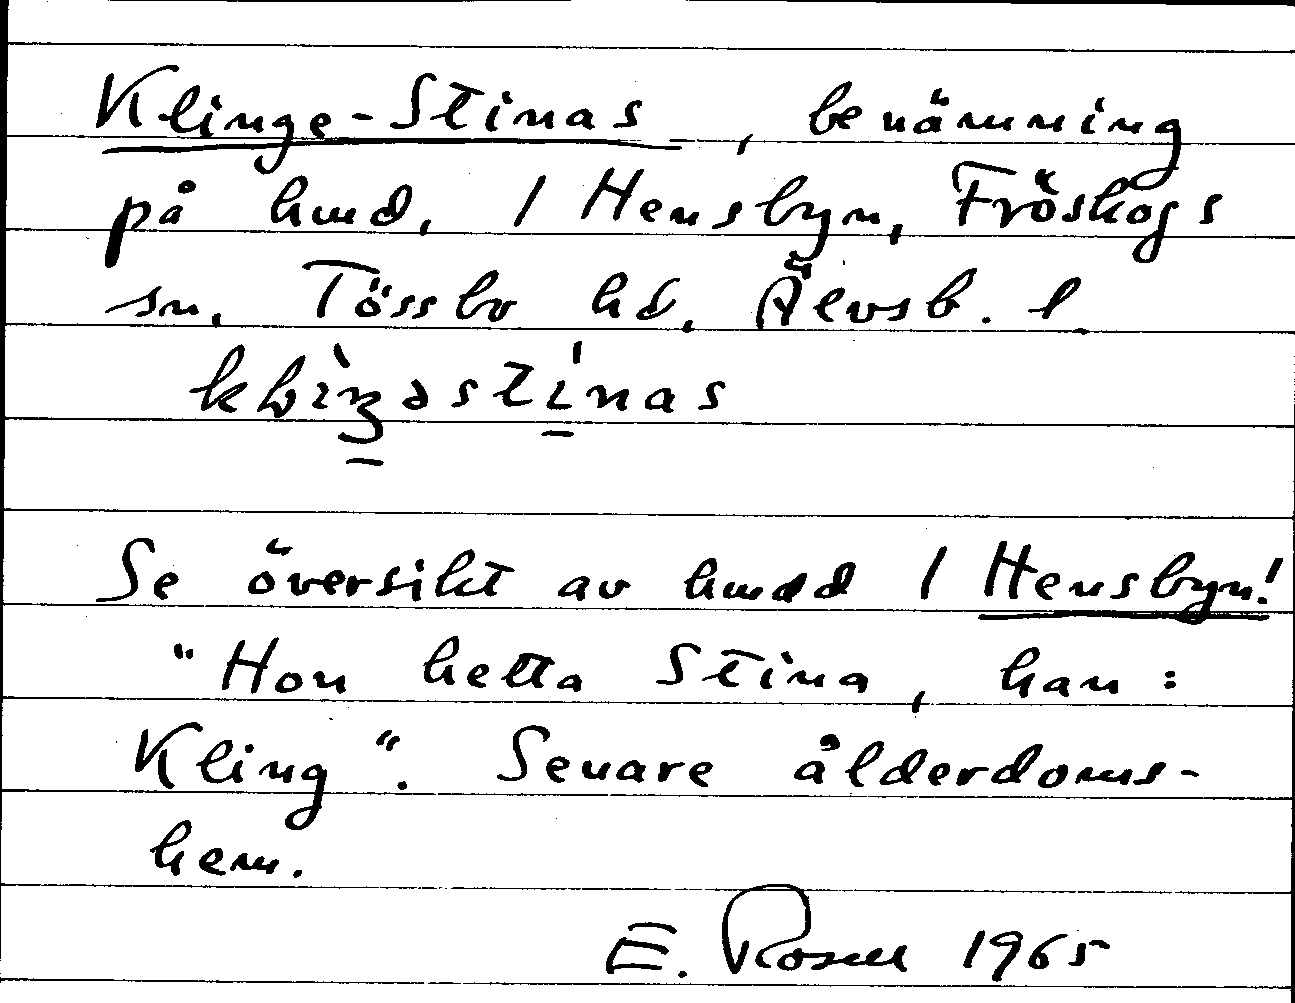 Klinge-Stinas, benämning
på hmd. 1 Hensbyn, Fröskogs
sn, Tössbo hd, Älvsb. l.
Se översikt av hmdd 1 Hensbyn!
"Hon hetta Stina, han:
Kling". Senare ålderdoms-
hem.
E. Rosell 1965